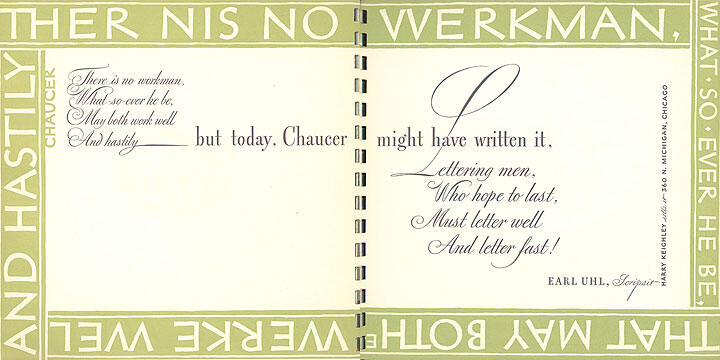 THER NIS NO WERKMAN,
WHAT·SO·EVER HE BE,
THAT MAY BOTHE
WERKE WEL
AND HASTILY
CHAUCER
There is no workman,
What-so-ever he be,
May both work well
And hastily
but today, Chaucer might have written it,
Lettering men,
Who hope to last,
Must letter well
And letter fast!
EARL UHL, Scripsit
HARRY KEIGHLEY sells it 360 N. MICHIGAN, CHICAGO